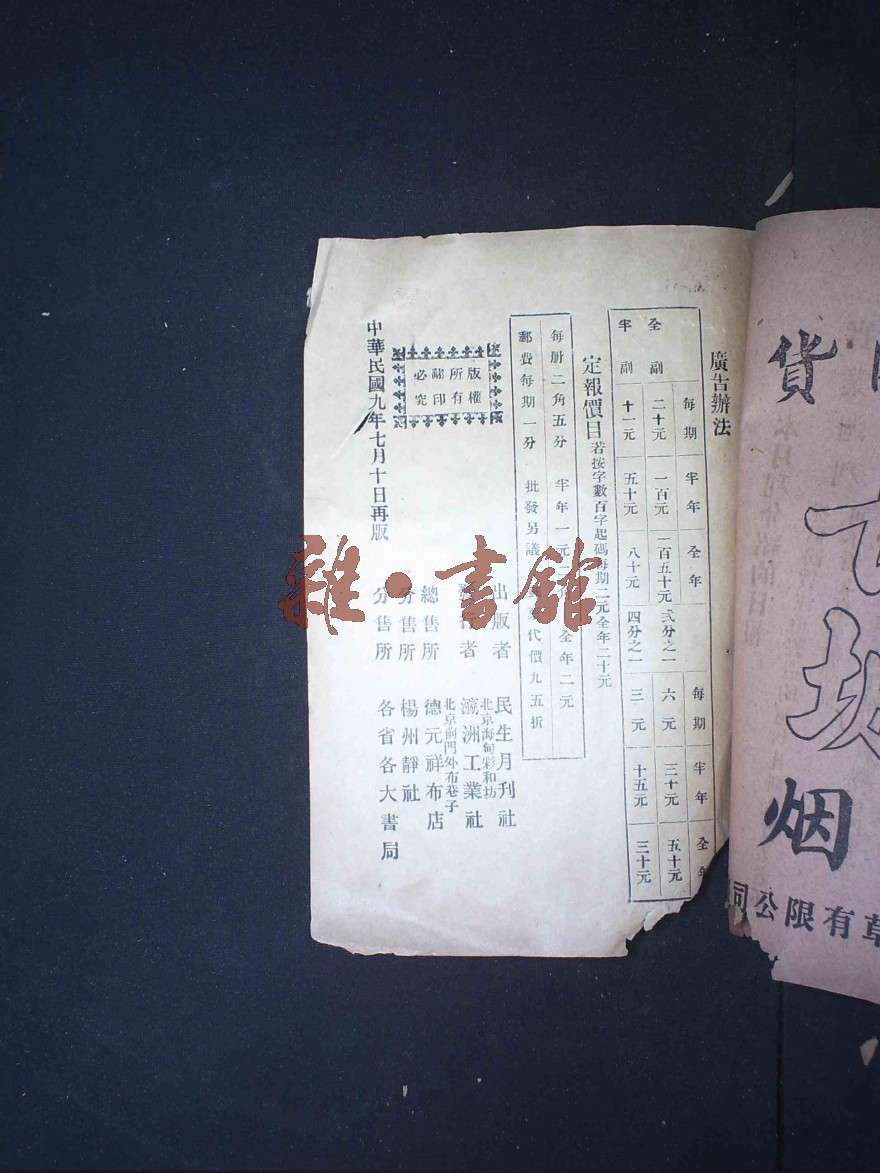 廣告辦法
每期 半年 全年 每期 半年 全年
全副 二十元 一百元 一百五十元 弍分之一 六元 三十元 五十元
半副 十一元 五十元 八十元 四分之一 三元 十五元 三十元
定報價目 若按字數百字起碼每期二元全年二十元
每册二角五分 半年一元二 全年二元
郵費每期一分 批發另議 代價九五折
版權
所有
翻印
必究
出版者 民生月刊社
北京海甸彩和坊
發行者 瀛洲工業社
北京前門外布巷子
總售所 德元祥布店
分售所 楊州靜社
分售所 各省各大書局
中華民國九年七月十日再版
雜·書館
貨
烟
草有限公司